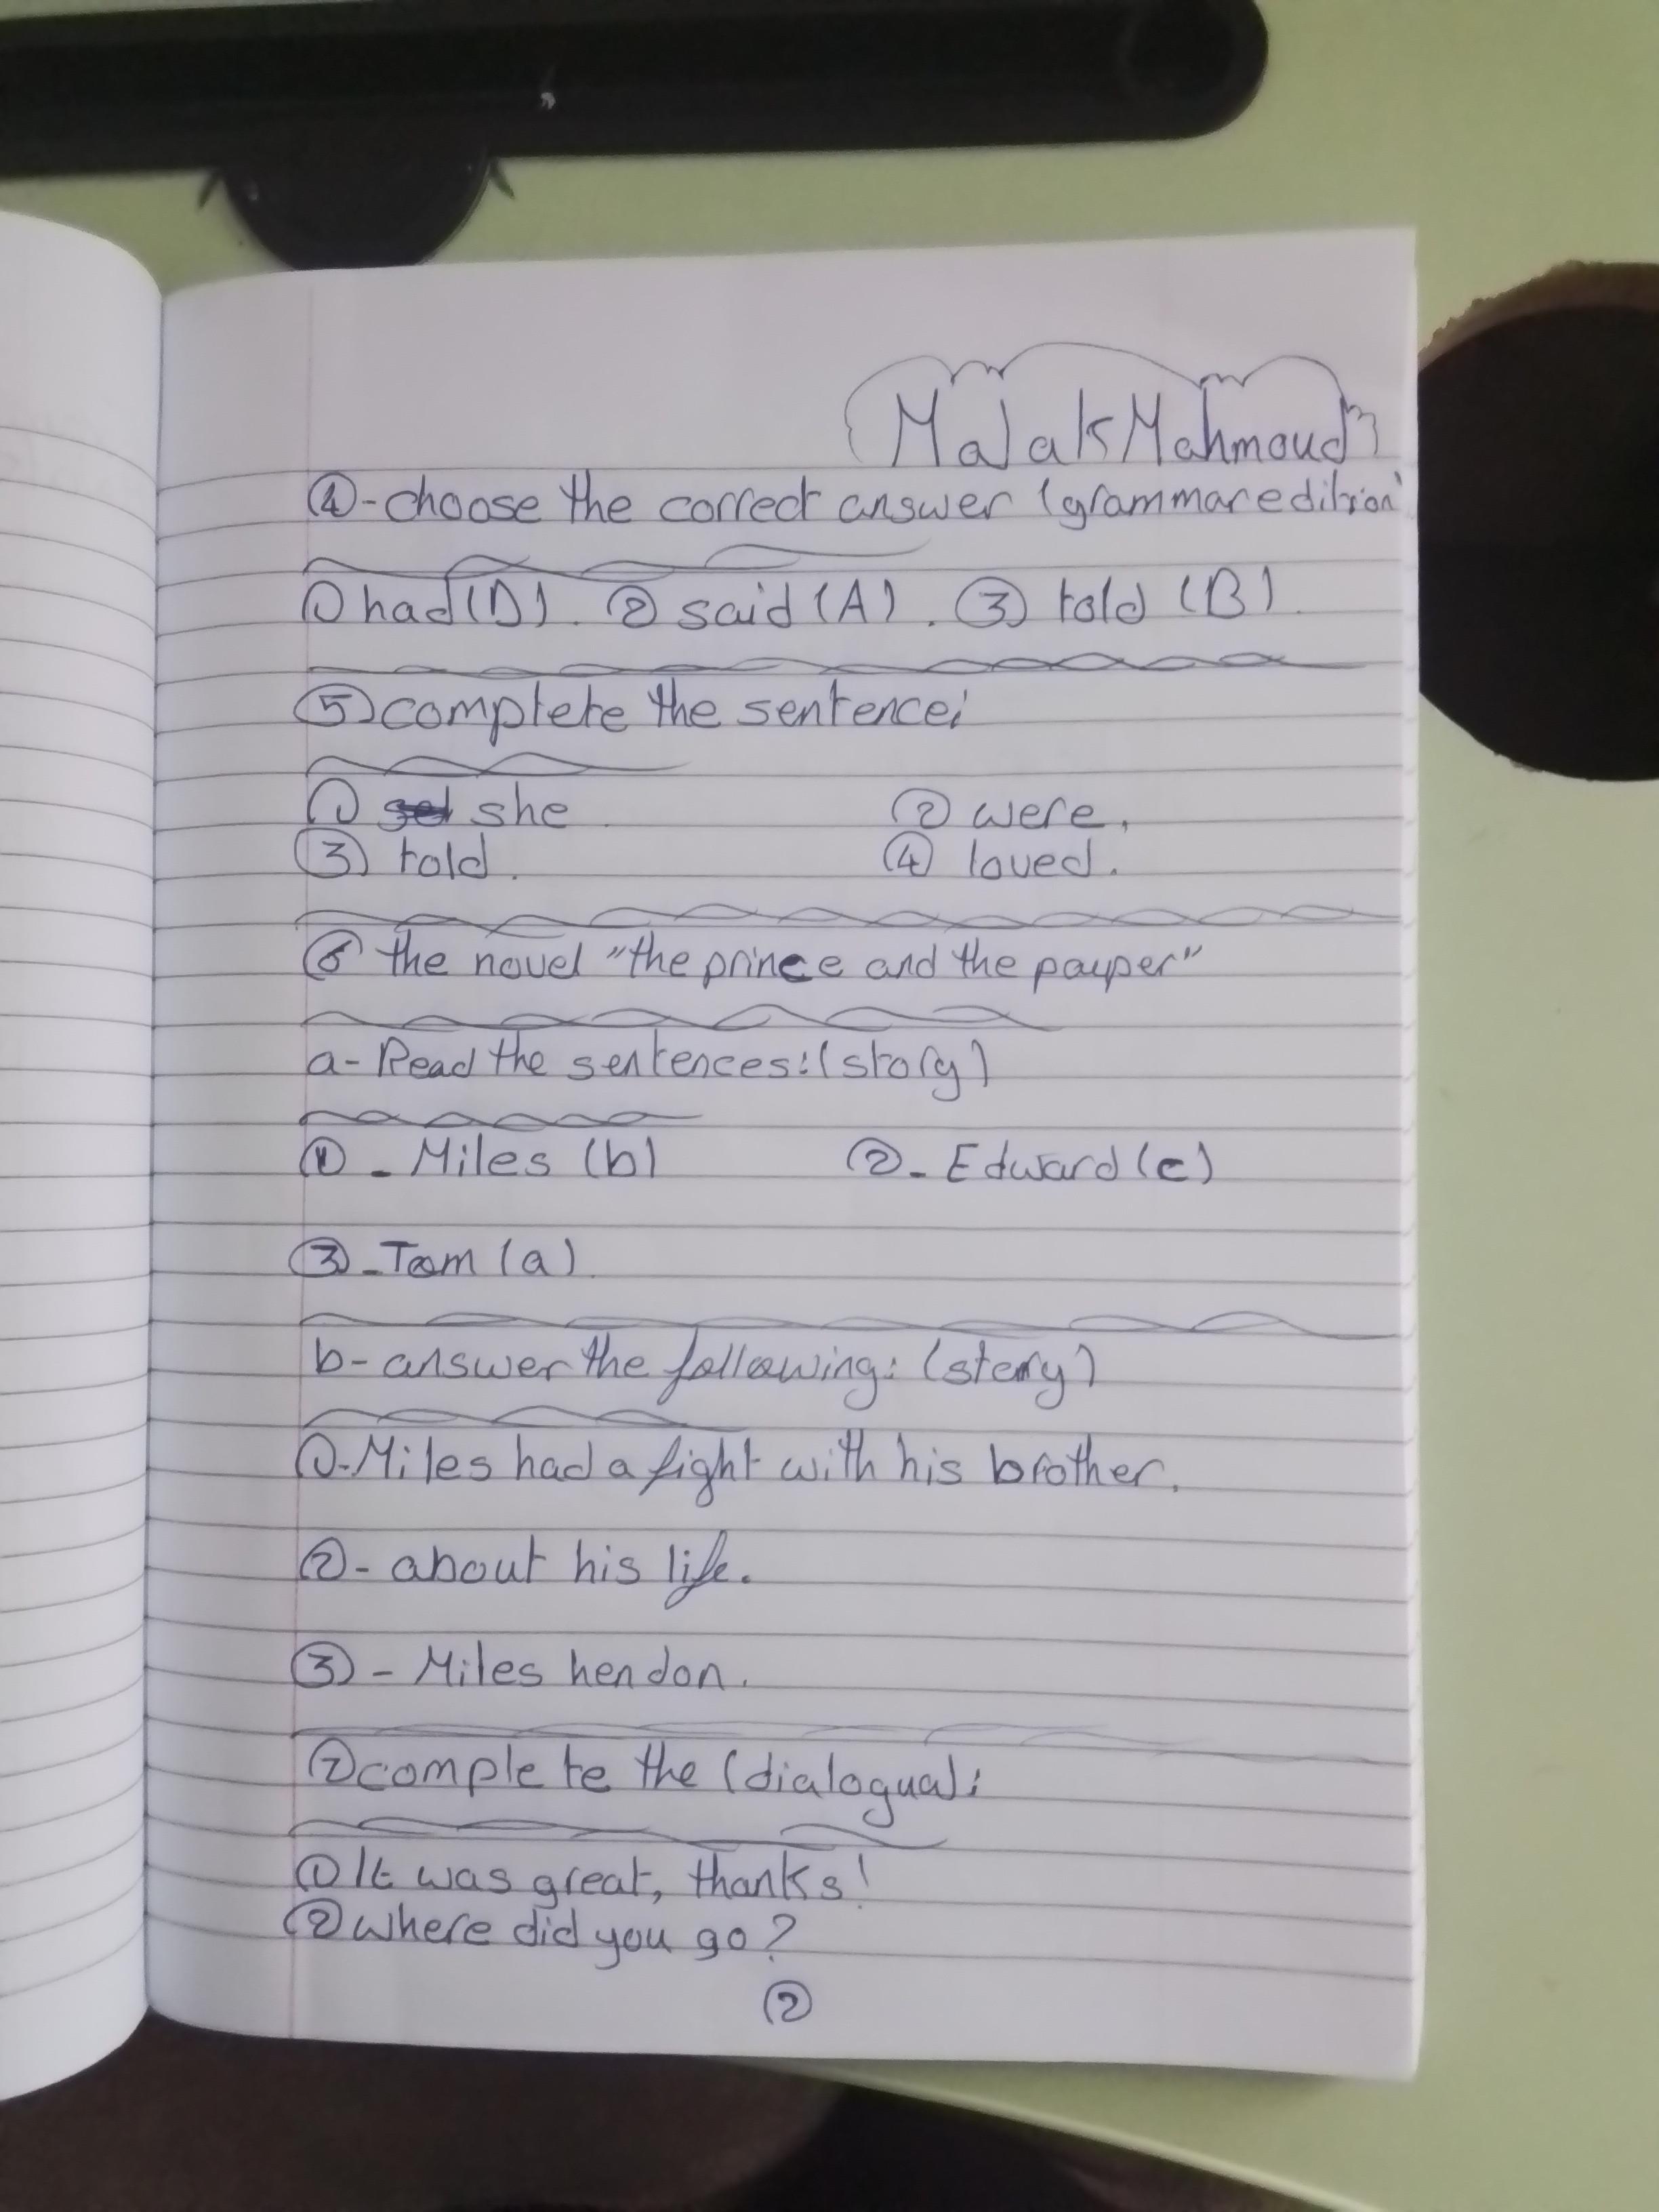 Malak Mahmoud
④-choose the correct answer (grammar edition)
① had (D). ② said (A). ③ told (B).
⑤ complete the sentence:
① she ② were.
③ told. ④ loved.
⑥ the novel "the prince and the pauper"
a- Read the sentences: (story)
①- Miles (b) ②- Edward (c)
③- Tom (a).
b- answer the following: (story)
①- Miles had a fight with his brother.
②- about his life.
③- Miles hendon.
⑦ complete the (dialogua):
① It was great, thanks!
② where did you go?
②